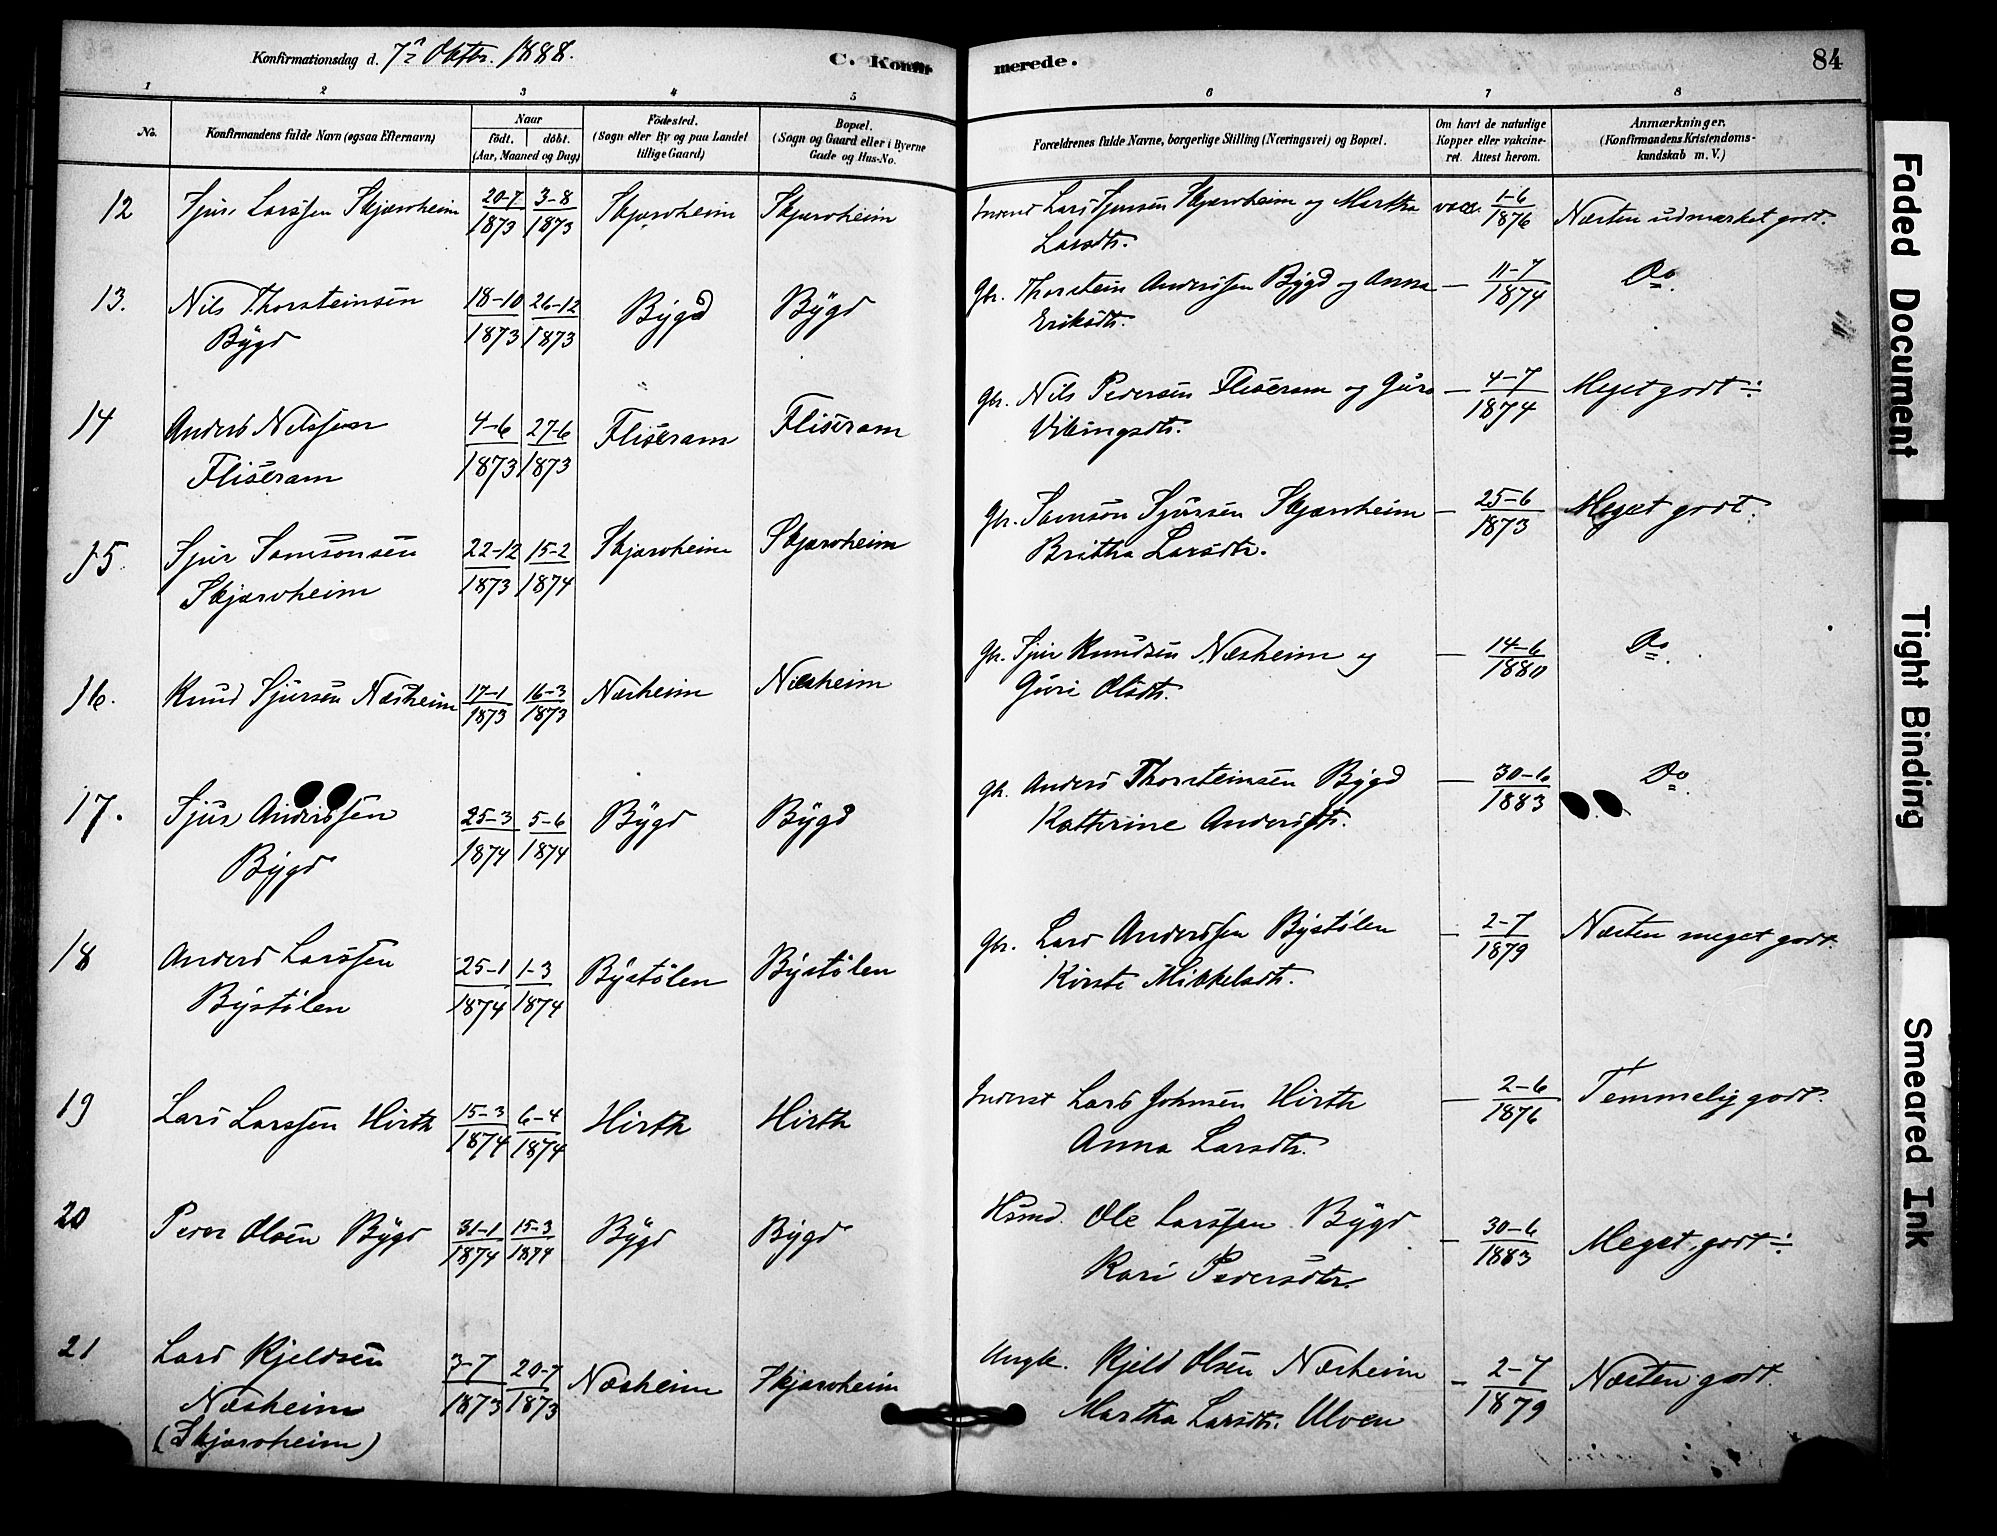 Konfirmationsdag d. 7de Oktbr. 1888.
C. Konfir
merede.
84
1 2 3 4 5 6 7 8
No.
Konfirmandens fulde Navn (ogsaa Efternavn)
Naar
født. døbt.
(Aar, Maaned og Dag)
Fødested.
(Sogn eller By og paa Landet
tillige Gaard)
Bopæl.
(Sogn og Gaard eller i Byerne
Gade og Hus-No.
Forældrenes fulde Navne, borgerlige Stilling (Næringsvei) og Bopæl.
Om havt de naturlige
Kopper eller vakcine-
ret. Attest herom.
Anmærkninger.
(Konfirmandens Kristendoms-
kundskab m. V.)
12 Sjur Larssen Skjærvheim 20-7 1873 3-8 1873 Skjærvheim Skjærvheim Inderst Lars Sjursen Skjærvheim og Martha vacc. 1-6 1876 Næsten udmærket godt.
Larsdtr.
13. Nils Thorsteinsen 18-10 1873 26-12 1873 Bÿgd Bÿgd Gbr. Thorstein Anderssen Bÿgd og Anna — 11-7 1874 Do.
Bÿgd
Eriksdtr.
14 Anders Nilssen 4-6 1873 27-6 1873 Fliseram Fliseram Gbr. Nils Pedersen Fliseram og Guro — 4-7 1874 Meget godt ÷
Fliseram
Vikingsdtr.
15. Sjur Samsonsen 22-12 1873 15-2 1874 Skjærvheim Skjærvheim Gbr. Samson Sjursen Skjærvheim — 25-6 1873 Meget godt.
Skjærvheim
Britha Larsdtr.
16. Knud Sjursen Næsheim 17-1 1873 16-3 1873 Næsheim Næsheim Gbr. Sjur Knudsen Næsheim og — 14-6 1880 Do.
Guri Olsdtr.
17. Sjur Anderssen 25-3 1874 5-6 1874 Bÿgd Bÿgd Gbr. Anders Thorsteinsen Bÿgd — 30-6 1883 Do.
Bÿgd
Kathrine Andersdtr.
18 Anders Larssen 25-1 1874 1-3 1874 Bÿstølen Bÿstølen Gbr. Lars Anderssen Bÿstølen — 2-7 1879 Næsten meget godt.
Bÿstølen
Kirsti Mikkelsdtr.
19 Lars Larssen Hirth 15-3 1874 6-4 1874 Hirth Hirth Inderst Lars Johnsen Hirth — 2-6 1876 Temmelig godt.
Anna Larsdtr.
20 Peder Olsen Bÿgd 31-1 1874 15-3 1874 Bÿgd Bÿgd Hsmd. Ole Larssen Bÿgd — 30-6 1883 Meget godt ÷
Kari Pedersdtr.
21 Lars Kjeldsen 3-7 1873 20-7 1873 Næsheim Skjærvheim Ungk. Kjeld Olsen Næsheim — 2-7 1879 Næsten godt.
Næsheim
Martha Larsdtr. Ulven
(Skjærvheim)
Faded Document
Tight Binding
Smeared Ink